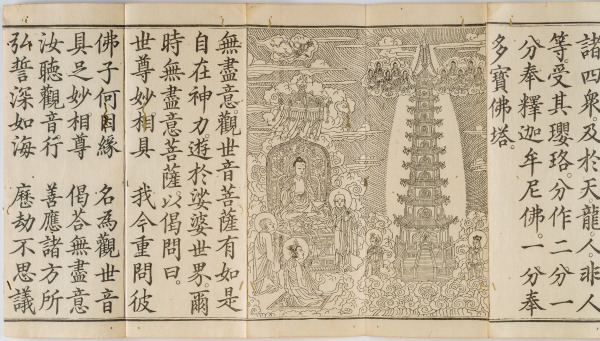 諸四衆。及於天。龍。人。非人
等。受其瓔珞。分作二分。一
分奉釋迦牟尼佛。一分奉
多寶佛塔。
無盡意觀世音菩薩有如是
自在神力。遊於娑婆世界。爾
時無盡意菩薩。以偈問曰。
世尊妙相具　我今重問彼
佛子何因緣　名為觀世音
具足妙相尊　偈荅無盡意
汝聽觀音行　善應諸方所
弘誓深如海　歷劫不思議